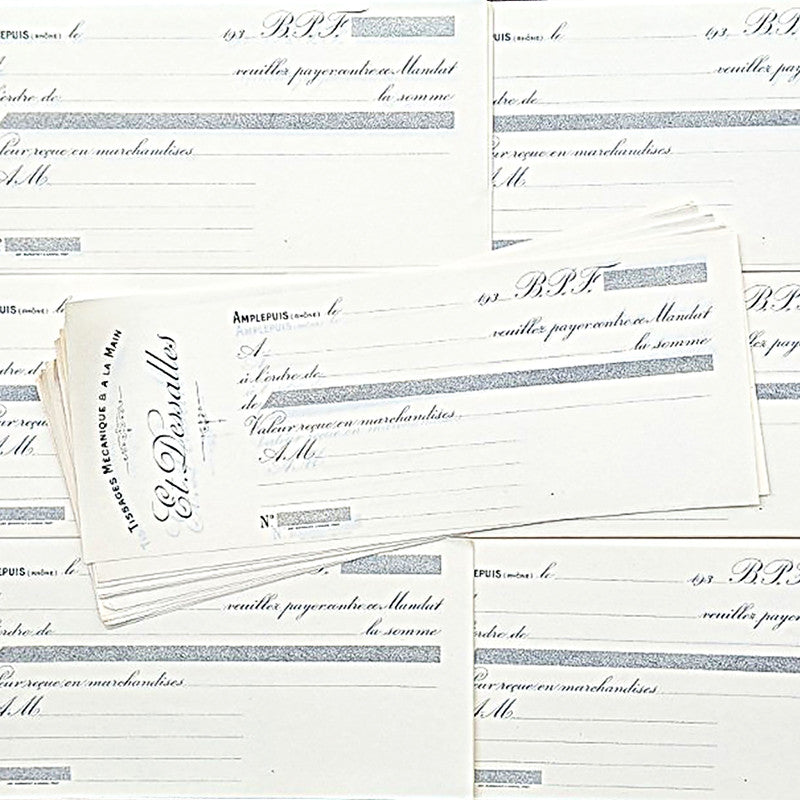 EPUIS (RHÔNE) le 193 B.P.F.
veuillez payer contre ce Mandat
l'ordre de la somme
Valeur reçue en marchandises
A M
PUIS (RHÔNE) le 193 B.P.
veuillez pay
dre de
ur reçue en marchandises
M
TISSAGES MÉCANIQUE & A LA MAIN
Et. Dessalles
AMPLEPUIS (RHÔNE) le 193 B.P.F.
A veuillez payer contre ce Mandat
à l'ordre de la somme
de
Valeur reçue en marchandises
A M
N°
UIS (RHÔNE) le
rdre d
ur reçue en
A M
B.P.F
llez pay
EPUIS (RHÔNE) le
veuillez payer contre ce Mandat
ordre de la somme
eur reçue en marchandises
A M
EPUIS (RHÔNE) le 193 B.P.F
veuillez payer
ordre de
eur reçue en marchandises
A M